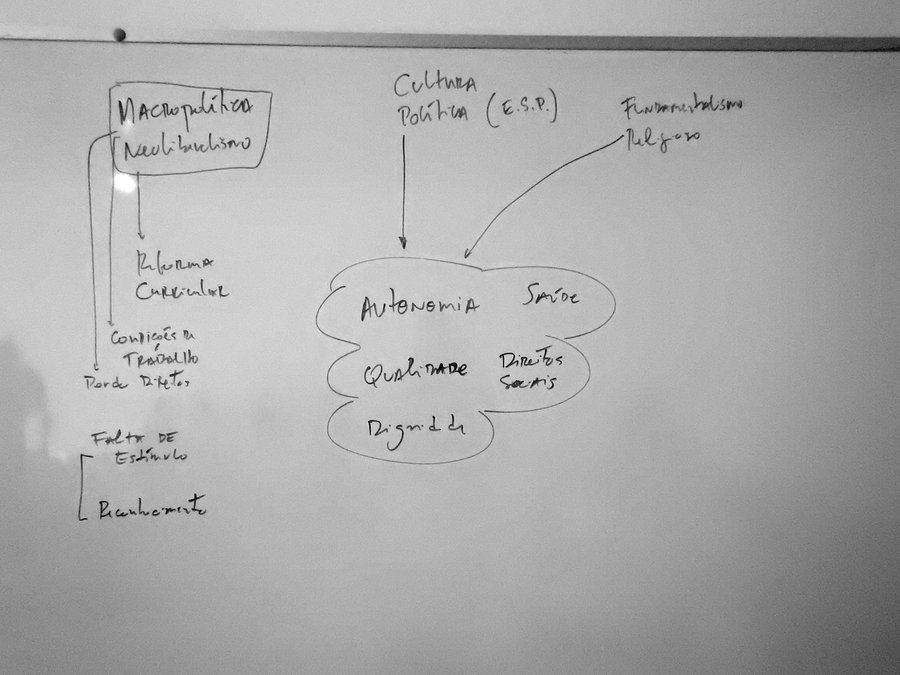 Macropolítica
Neoliberalismo
Reforma
Curricular
Condições de
Trabalho
Perda Direitos
Falta de
Estímulo
Reconhecimento
Cultura
Política (E.S.P.)
Fundamentalismo
Religioso
Autonomia Saúde
Qualidade Direitos
Sociais
Dignidade